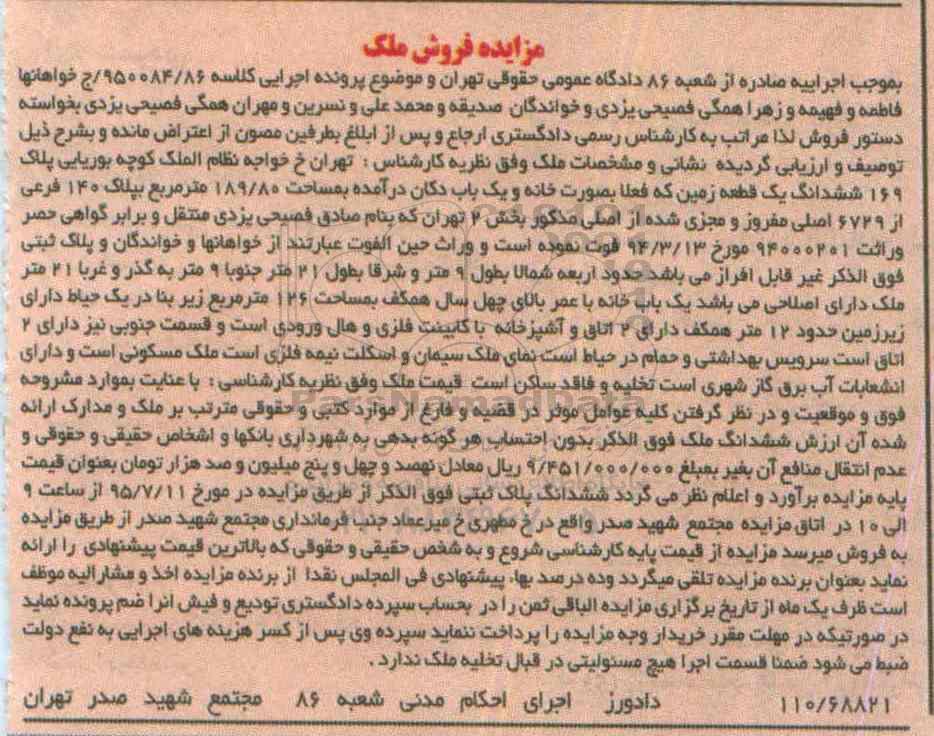 مزایده فروش ملک
بموجب اجراییه صادره از شعبه ۸۶ دادگاه عمومی حقوقی تهران و موضوع پرونده اجرایی کلاسه ۹۵۰۰۸۴/۸۶/ج خواهانها
فاطمه و فهیمه و زهرا همگی فصیحی یزدی و خواندگان صدیقه و محمد علی و نسرین و مهران همگی فصیحی یزدی بخواسته
دستور فروش لذا مراتب به کارشناس رسمی دادگستری ارجاع و پس از ابلاغ بطرفین مصون از اعتراض مانده و بشرح ذیل
توصیف و ارزیابی گردیده نشانی و مشخصات ملک وفق نظریه کارشناس : تهران خ خواجه نظام الملک کوچه بوریایی پلاک
۱۶۹ ششدانگ یک قطعه زمین که فعلا بصورت خانه و یک باب دکان درآمده بمساحت ۱۸۹/۸۰ مترمربع بپلاک ۱۴۰ فرعی
از ۶۷۲۹ اصلی مفروز و مجزی شده از اصلی مذکور بخش ۲ تهران که بنام صادق فصیحی یزدی منتقل و برابر گواهی حصر
وراثت ۹۴۰۰۰۲۰۱ مورخ ۹۴/۳/۱۳ فوت نموده است و وراث حین الفوت عبارتند از خواهانها و خواندگان و پلاک ثبتی
فوق الذکر غیر قابل افراز می باشد حدود اربعه شمالا بطول ۹ متر و شرقا بطول ۲۱ متر جنوبا ۹ متر به گذر و غربا ۲۱ متر
ملک دارای اصلاحی می باشد یک باب خانه با عمر بالای چهل سال همکف بمساحت ۱۲۶ مترمربع زیر بنا در یک حیاط دارای
زیرزمین حدود ۱۲ متر همکف دارای ۲ اتاق و آشپزخانه با کابینت فلزی و هال ورودی است و قسمت جنوبی نیز دارای ۲
اتاق است سرویس بهداشتی و حمام در حیاط است نمای ملک سیمان و اسکلت نیمه فلزی است ملک مسکونی است و دارای
انشعابات آب برق گاز شهری است تخلیه و فاقد ساکن است قیمت ملک وفق نظریه کارشناسی : با عنایت بموارد مشروحه
فوق و موقعیت و در نظر گرفتن کلیه عوامل موثر در قضیه و فارغ از موارد کتبی و حقوقی مترتب بر ملک و مدارک ارائه
شده آن ارزش ششدانگ ملک فوق الذکر بدون احتساب هر گونه بدهی به شهرداری بانکها و اشخاص حقیقی و حقوقی و
عدم انتقال منافع آن بغیر بمبلغ ۹/۴۵۱/۰۰۰/۰۰۰ ریال معادل نهصد و چهل و پنج میلیون و صد هزار تومان بعنوان قیمت
پایه مزایده برآورد و اعلام نظر می گردد ششدانگ پلاک ثبتی فوق الذکر از طریق مزایده در مورخ ۹۵/۷/۱۱ از ساعت ۹
الی ۱۰ در اتاق مزایده مجتمع شهید صدر واقع در خ مطهری خ میرعماد جنب فرمانداری مجتمع شهید صدر از طریق مزایده
به فروش میرسد مزایده از قیمت پایه کارشناسی شروع و به شخص حقیقی و حقوقی که بالاترین قیمت پیشنهادی را ارائه
نماید بعنوان برنده مزایده تلقی میگردد وده درصد بهاء پیشنهادی فی المجلس نقدا از برنده مزایده اخذ و مشارالیه موظف
است ظرف یک ماه از تاریخ برگزاری مزایده الباقی ثمن را در بحساب سپرده دادگستری تودیع و فیش انرا ضم پرونده نماید
در صورتیکه در مهلت مقرر خریدار وجه مزایده را پرداخت ننماید سپرده وی پس از کسر هزینه های اجرایی به نفع دولت
ضبط می شود ضمنا قسمت اجرا هیچ مسئولیتی در قبال تخلیه ملک ندارد .
۱۱۰/۶۸۸۲۱ دادورز اجرای احکام مدنی شعبه ۸۶ مجتمع شهید صدر تهران
ParsNamadData